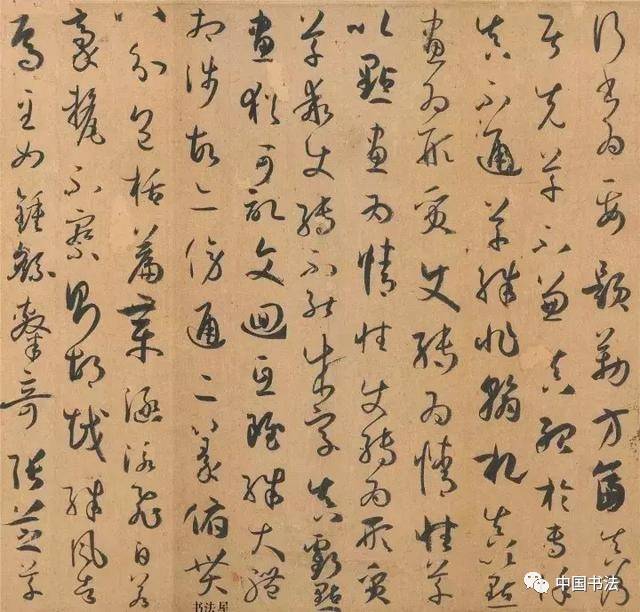 行書為要題勒方畐真乃
居先草不兼真殆於專謹
真不通草殊非翰札真以點
畫為形質使轉為情性草
以點畫為情性使轉為形質
草乖使轉不能成字真虧點
畫猶可記文迴互雖殊大體
相涉故亦傍通二篆俯貫
八分包括篇章涵泳飛白若
豪釐不察則胡越殊風者
焉至如鍾繇隸奇張芝草
书法
中国书法